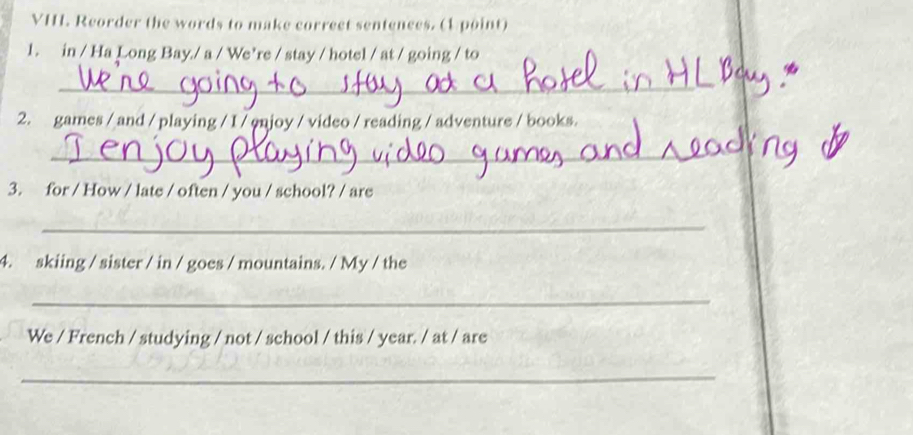 VIII. Reorder the words to make correct sentences. (1 point)
1. in / Ha Long Bay./ a / We're / stay / hotel / at / going / to
We're going to stay at a hotel in HL Bay.
2. games / and / playing / I / enjoy / video / reading / adventure / books.
I enjoy playing video games and reading
3. for / How / late / often / you / school? / are
4. skiing / sister / in / goes / mountains. / My / the
We / French / studying / not / school / this / year. / at / are